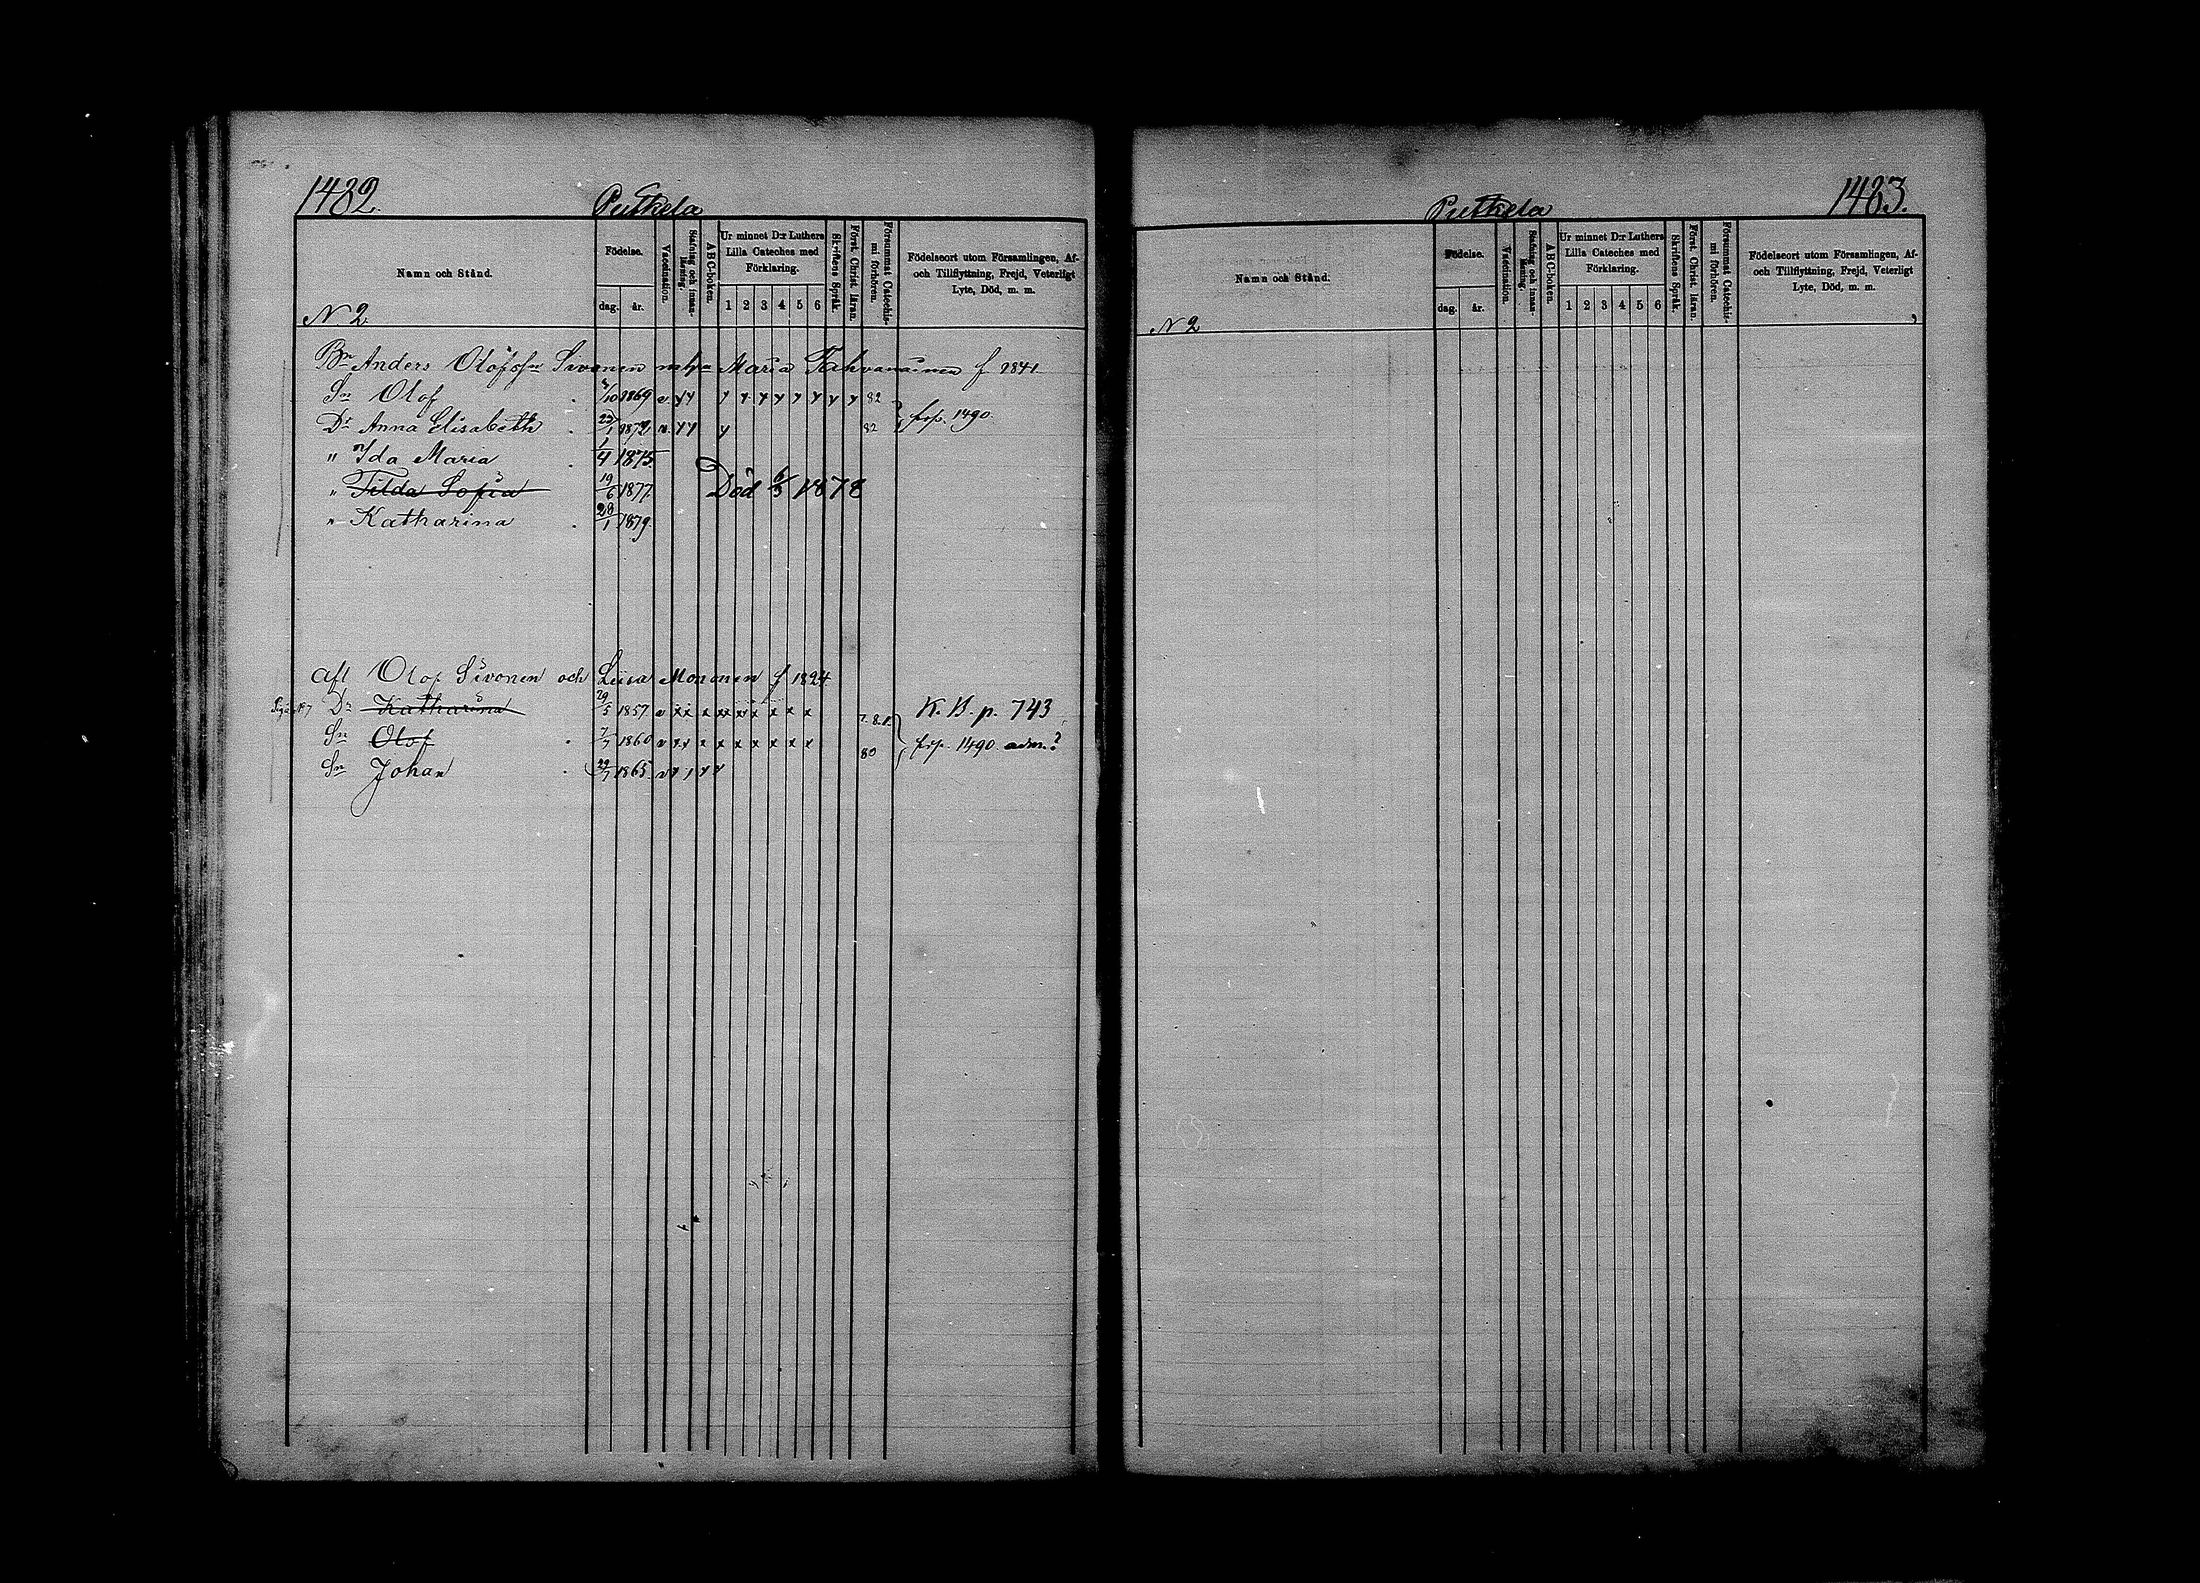 1482. Putkela
Namn och Stånd.
Födelse.
dag. år.
Vaccination.
Stafning och innan-läsning.
ABC-boken.
Ur minnet D:r Luthers Lilla Cateches med Förklaring.
1 2 3 4 5 6
Skriftens Språk.
Först. Christ. läran.
Försummat Catechis-mi förhören.
Födelseort utom Församlingen, Af- och Tillflyttning, Frejd, Veterligt Lyte, Död, m. m.
N 2.
Bn Anders Olofssn Sivonen Maria f 1841
Sn Olof 1869 v y y y y y y y y y y 82
Dr Anna Elisabeth 23/1 1872 v. y y y 82 } frp. 1490.
" Ida Maria 1/4 1875
" Tilda Sofia 19/6 1877. Död 6/3 1878
" Katharina 28/1 1879.
Afl Olof Sivonen och Liisa Mononen f 1824.
Dr Katharina 29/5 1857 v x x x x x x x x x 7.8.1. K. B. p. 743
Sn Olof 7/7 1860 v x x x x x x x x x 80 } frp. 1490 adm.?
Sn Johan 29/7 1865
Putkela 1483.
Namn och Stånd.
Födelse.
dag. år.
Vaccination.
Stafning och innan-läsning.
ABC-boken.
Ur minnet D:r Luthers Lilla Cateches med Förklaring.
1 2 3 4 5 6
Skriftens Språk.
Först. Christ. läran.
Försummat Catechis-mi förhören.
Födelseort utom Församlingen, Af- och Tillflyttning, Frejd, Veterligt Lyte, Död, m. m.
N 2